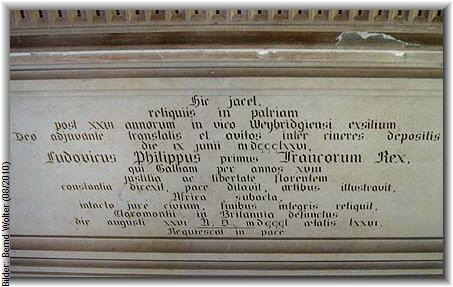 Hic jacet,
reliquiis in patriam
post XXVI annorum in vico Weybridgiensi exsilium,
Deo adjuvante translatis et avitos inter cineres depositis
die IX junii MDCCCLXXVI,
Ludovicus Philippus primus Francorum Rex,
qui Galliam per annos XVIII
justitia ac libertate florentem
constantia direxit, pace ditavit, artibus illustravit,
Africa subacta,
intacto jure civium, finibus integris reliquit,
Claromontii in Britannia defunctus
die augusti XXVI A. D. MDCCCL ætatis LXXVI.
Requiescat in pace
Bilder: Bernd Wolter (08/2010)